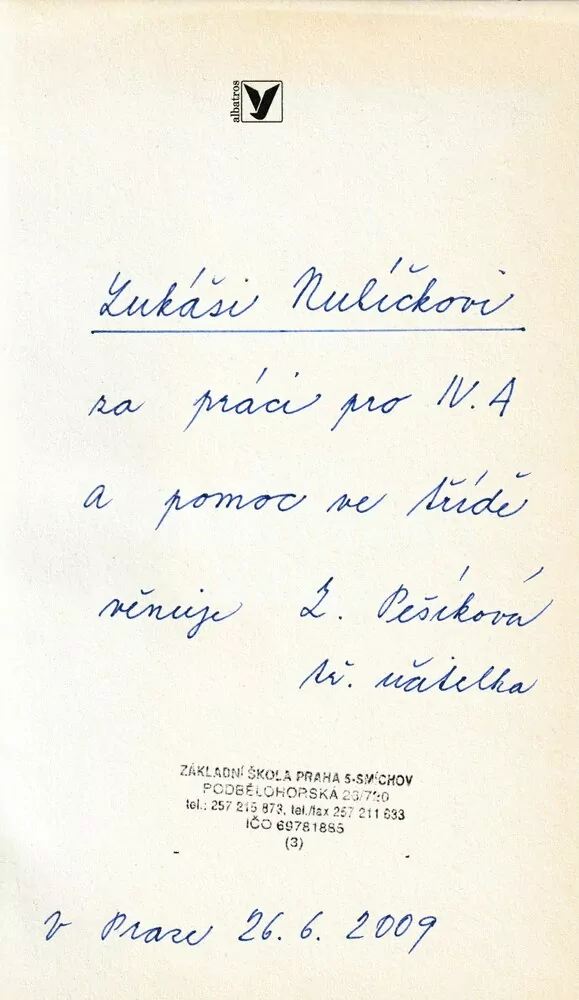 albatros
Lukáši Nulíčkovi
za práci pro IV. A
a pomoc ve třídě
věnuje Z. Pešíková
tř. učitelka
ZÁKLADNÍ ŠKOLA PRAHA 5-SMÍCHOV
PODBĚLOHORSKÁ 26/720
tel.: 257 215 873, tel./fax 257 211 633
IČO 69781885
(3)
V Praze 26. 6. 2009